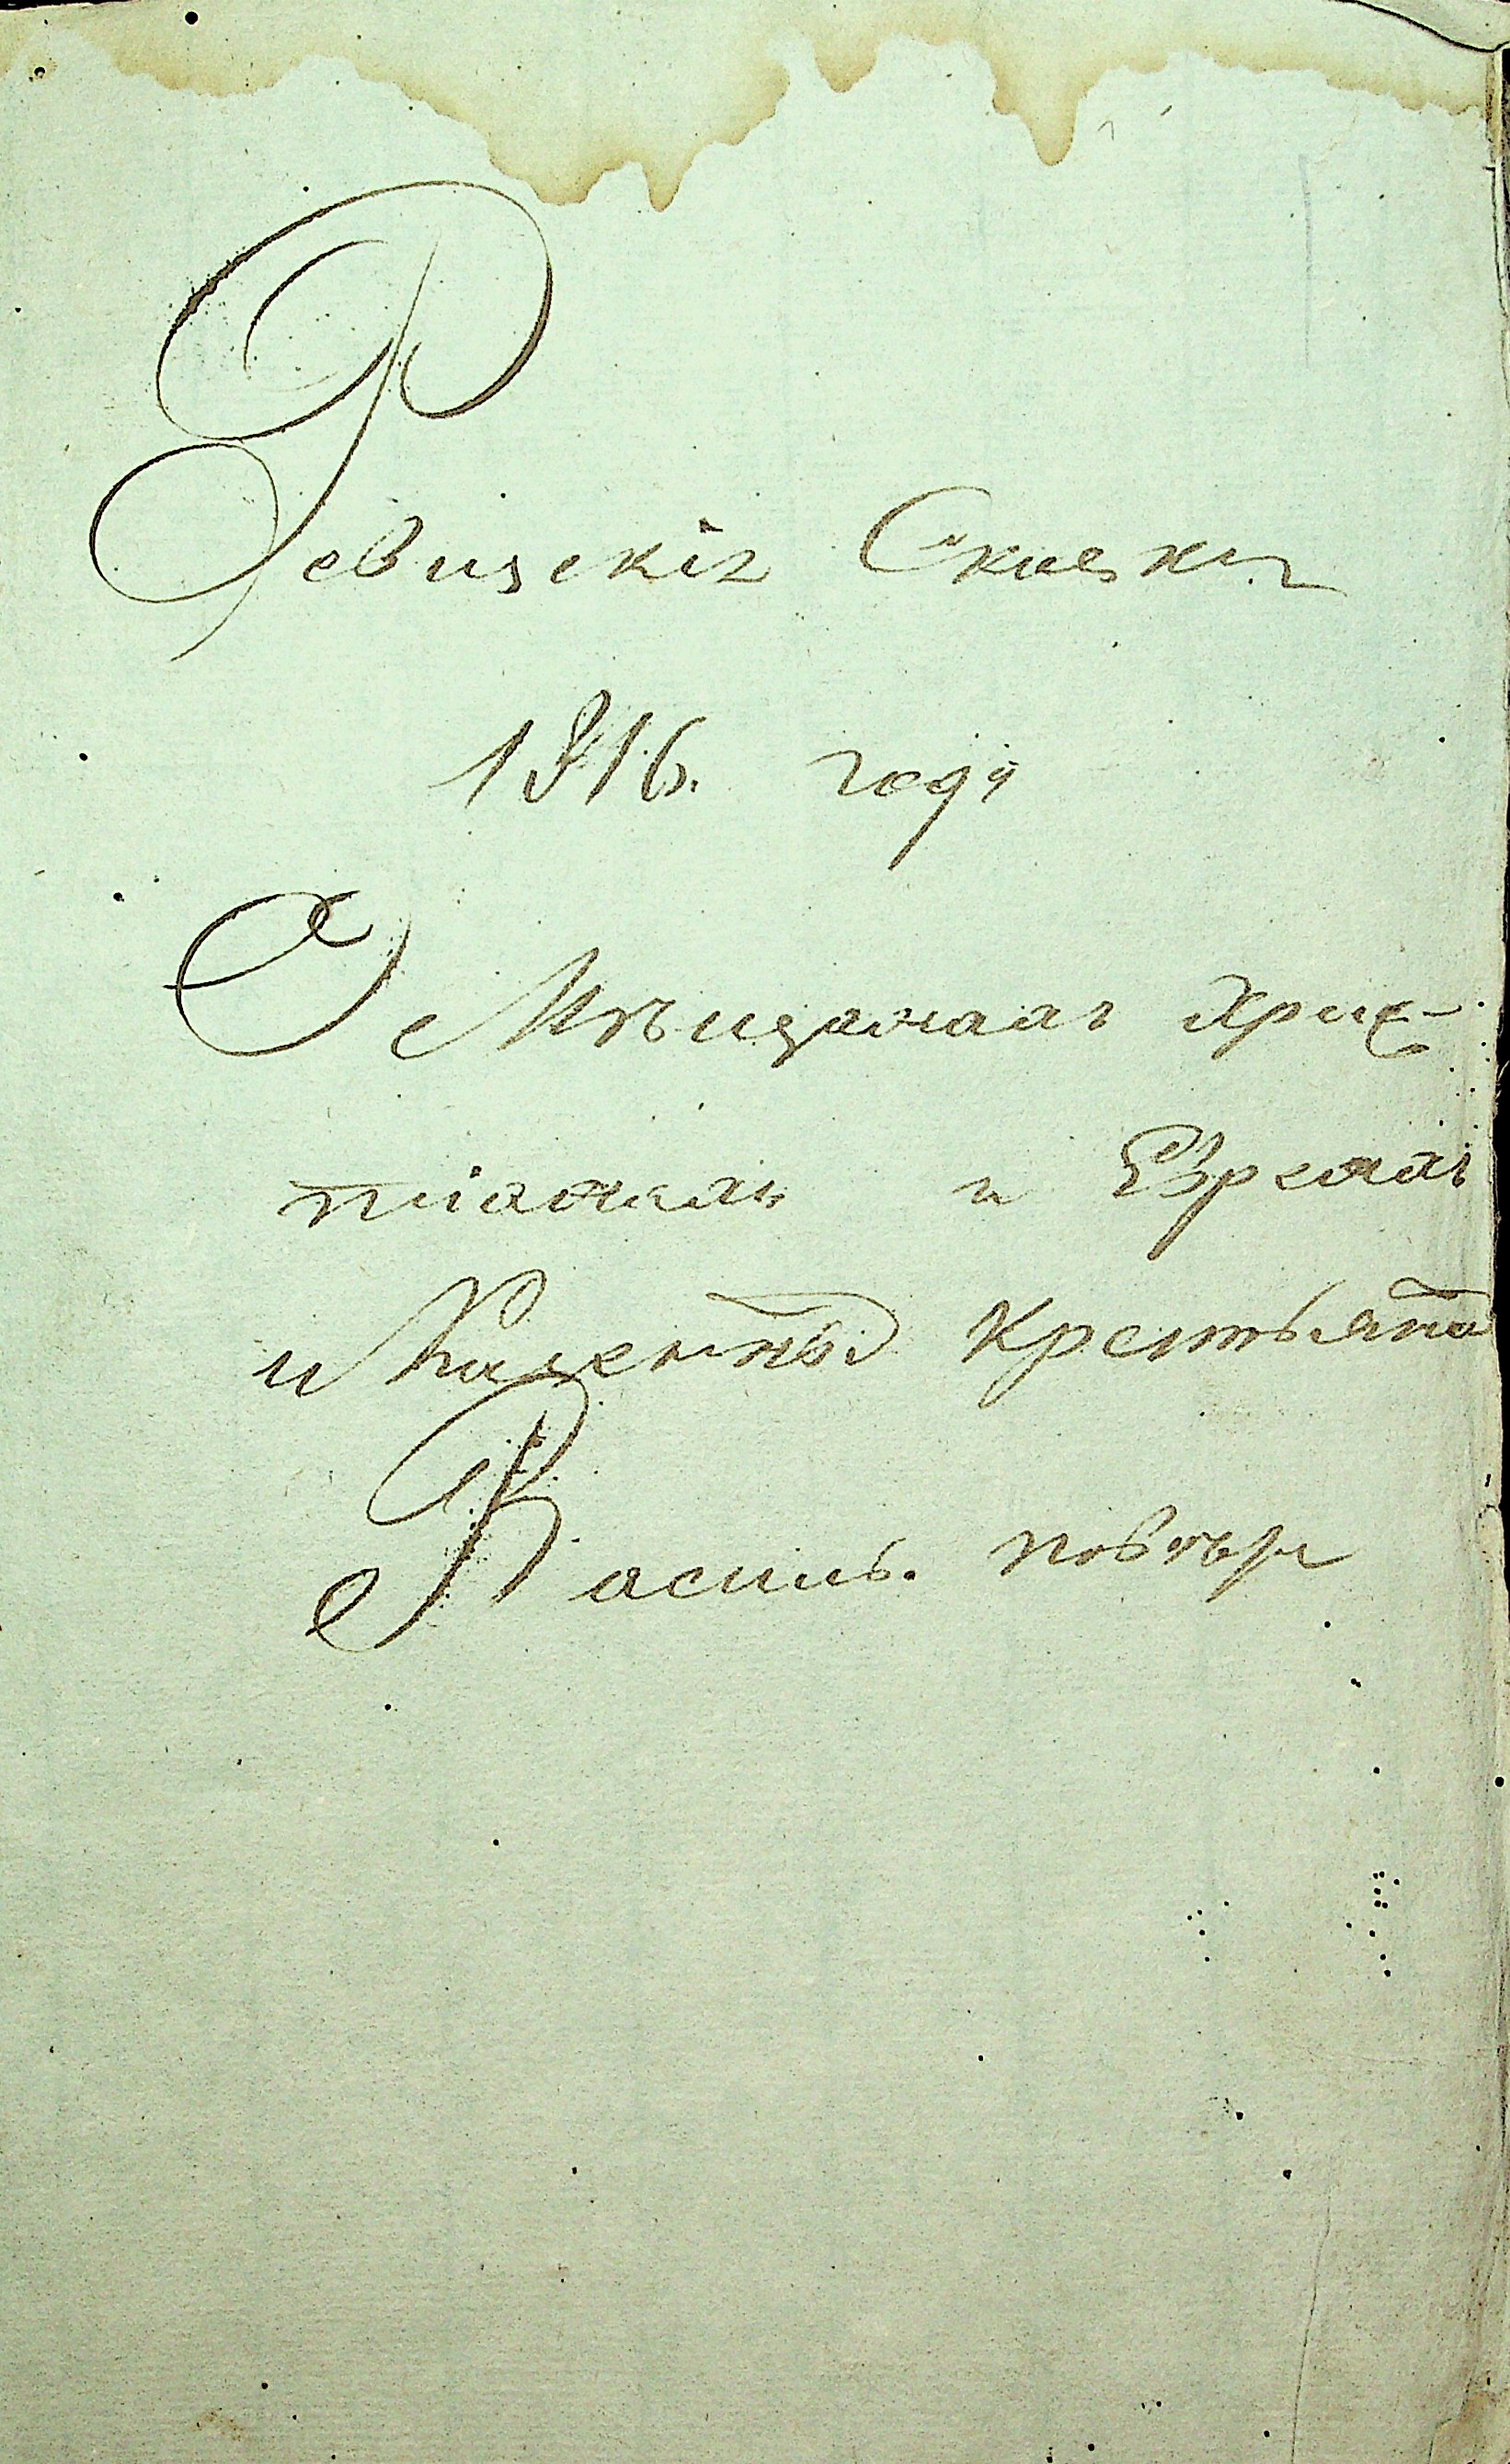 Ревизскія Сказки
1816. года
О Мѣщанахъ Хрис-
тіанахъ и Евреяхъ
и Казенныхъ Крестьянахъ
Васильк. повѣта